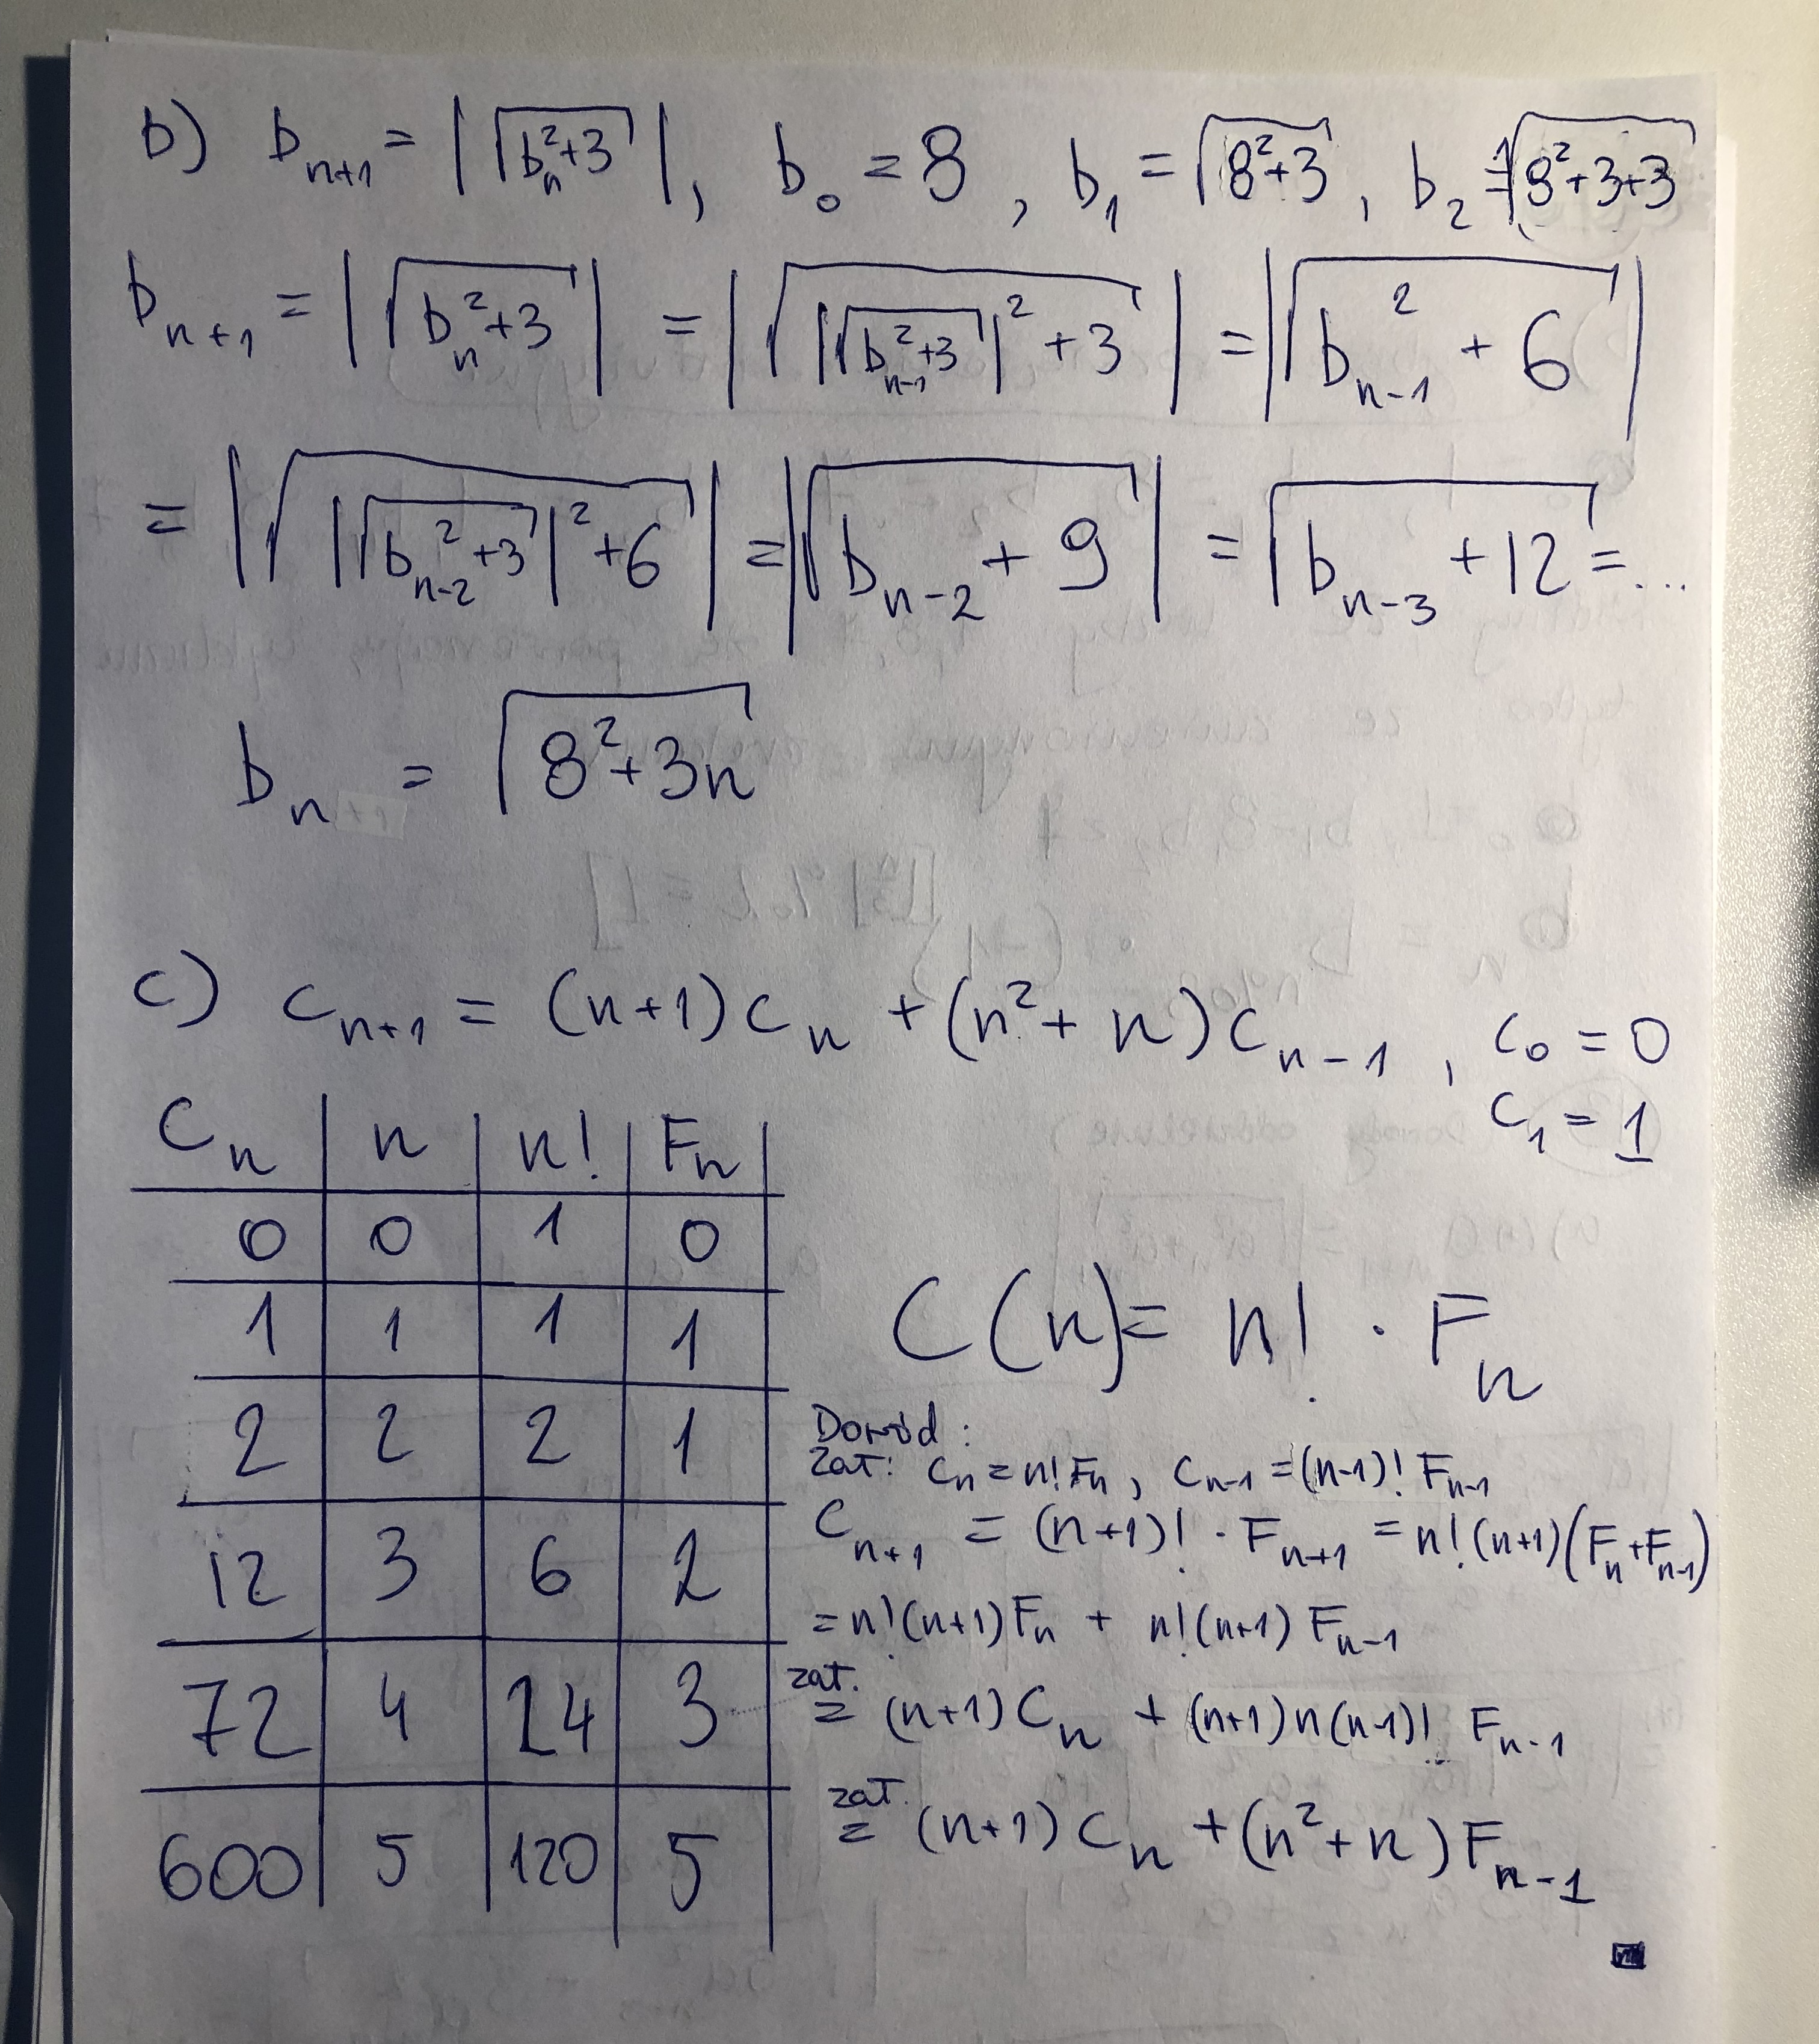 b) b_{n+1} = |√(b_n²+3)|, b_0 = 8, b_1 = √(8²+3), b_2 = √(8²+3+3)
b_{n+1} = |√(b_n²+3)| = |√(|√(b_{n-1}²+3)|²+3)| = |√(b_{n-1}²+6)|
= |√(|√(b_{n-2}²+3)|²+6)| = |√(b_{n-2}+9)| = √(b_{n-3}+12) = ...
b_n = √(8²+3n)
c) c_{n+1} = (n+1)c_n + (n²+n)c_{n-1}, c_0 = 0
c_1 = 1
C_n | n | n! | F_n
0 | 0 | 1 | 0
1 | 1 | 1 | 1
2 | 2 | 2 | 1
12 | 3 | 6 | 2
72 | 4 | 24 | 3
600 | 5 | 120 | 5
C(n) = n! · F_n
Dowód:
zał: c_n = n! F_n, c_{n-1} = (n-1)! F_{n-1}
c_{n+1} = (n+1)! · F_{n+1} = n!(n+1)(F_n+F_{n-1})
= n!(n+1)F_n + n!(n+1) F_{n-1}
zał.
= (n+1)C_n + (n+1)n(n-1)! F_{n-1}
zał.
= (n+1)C_n + (n²+n)F_{n-1}